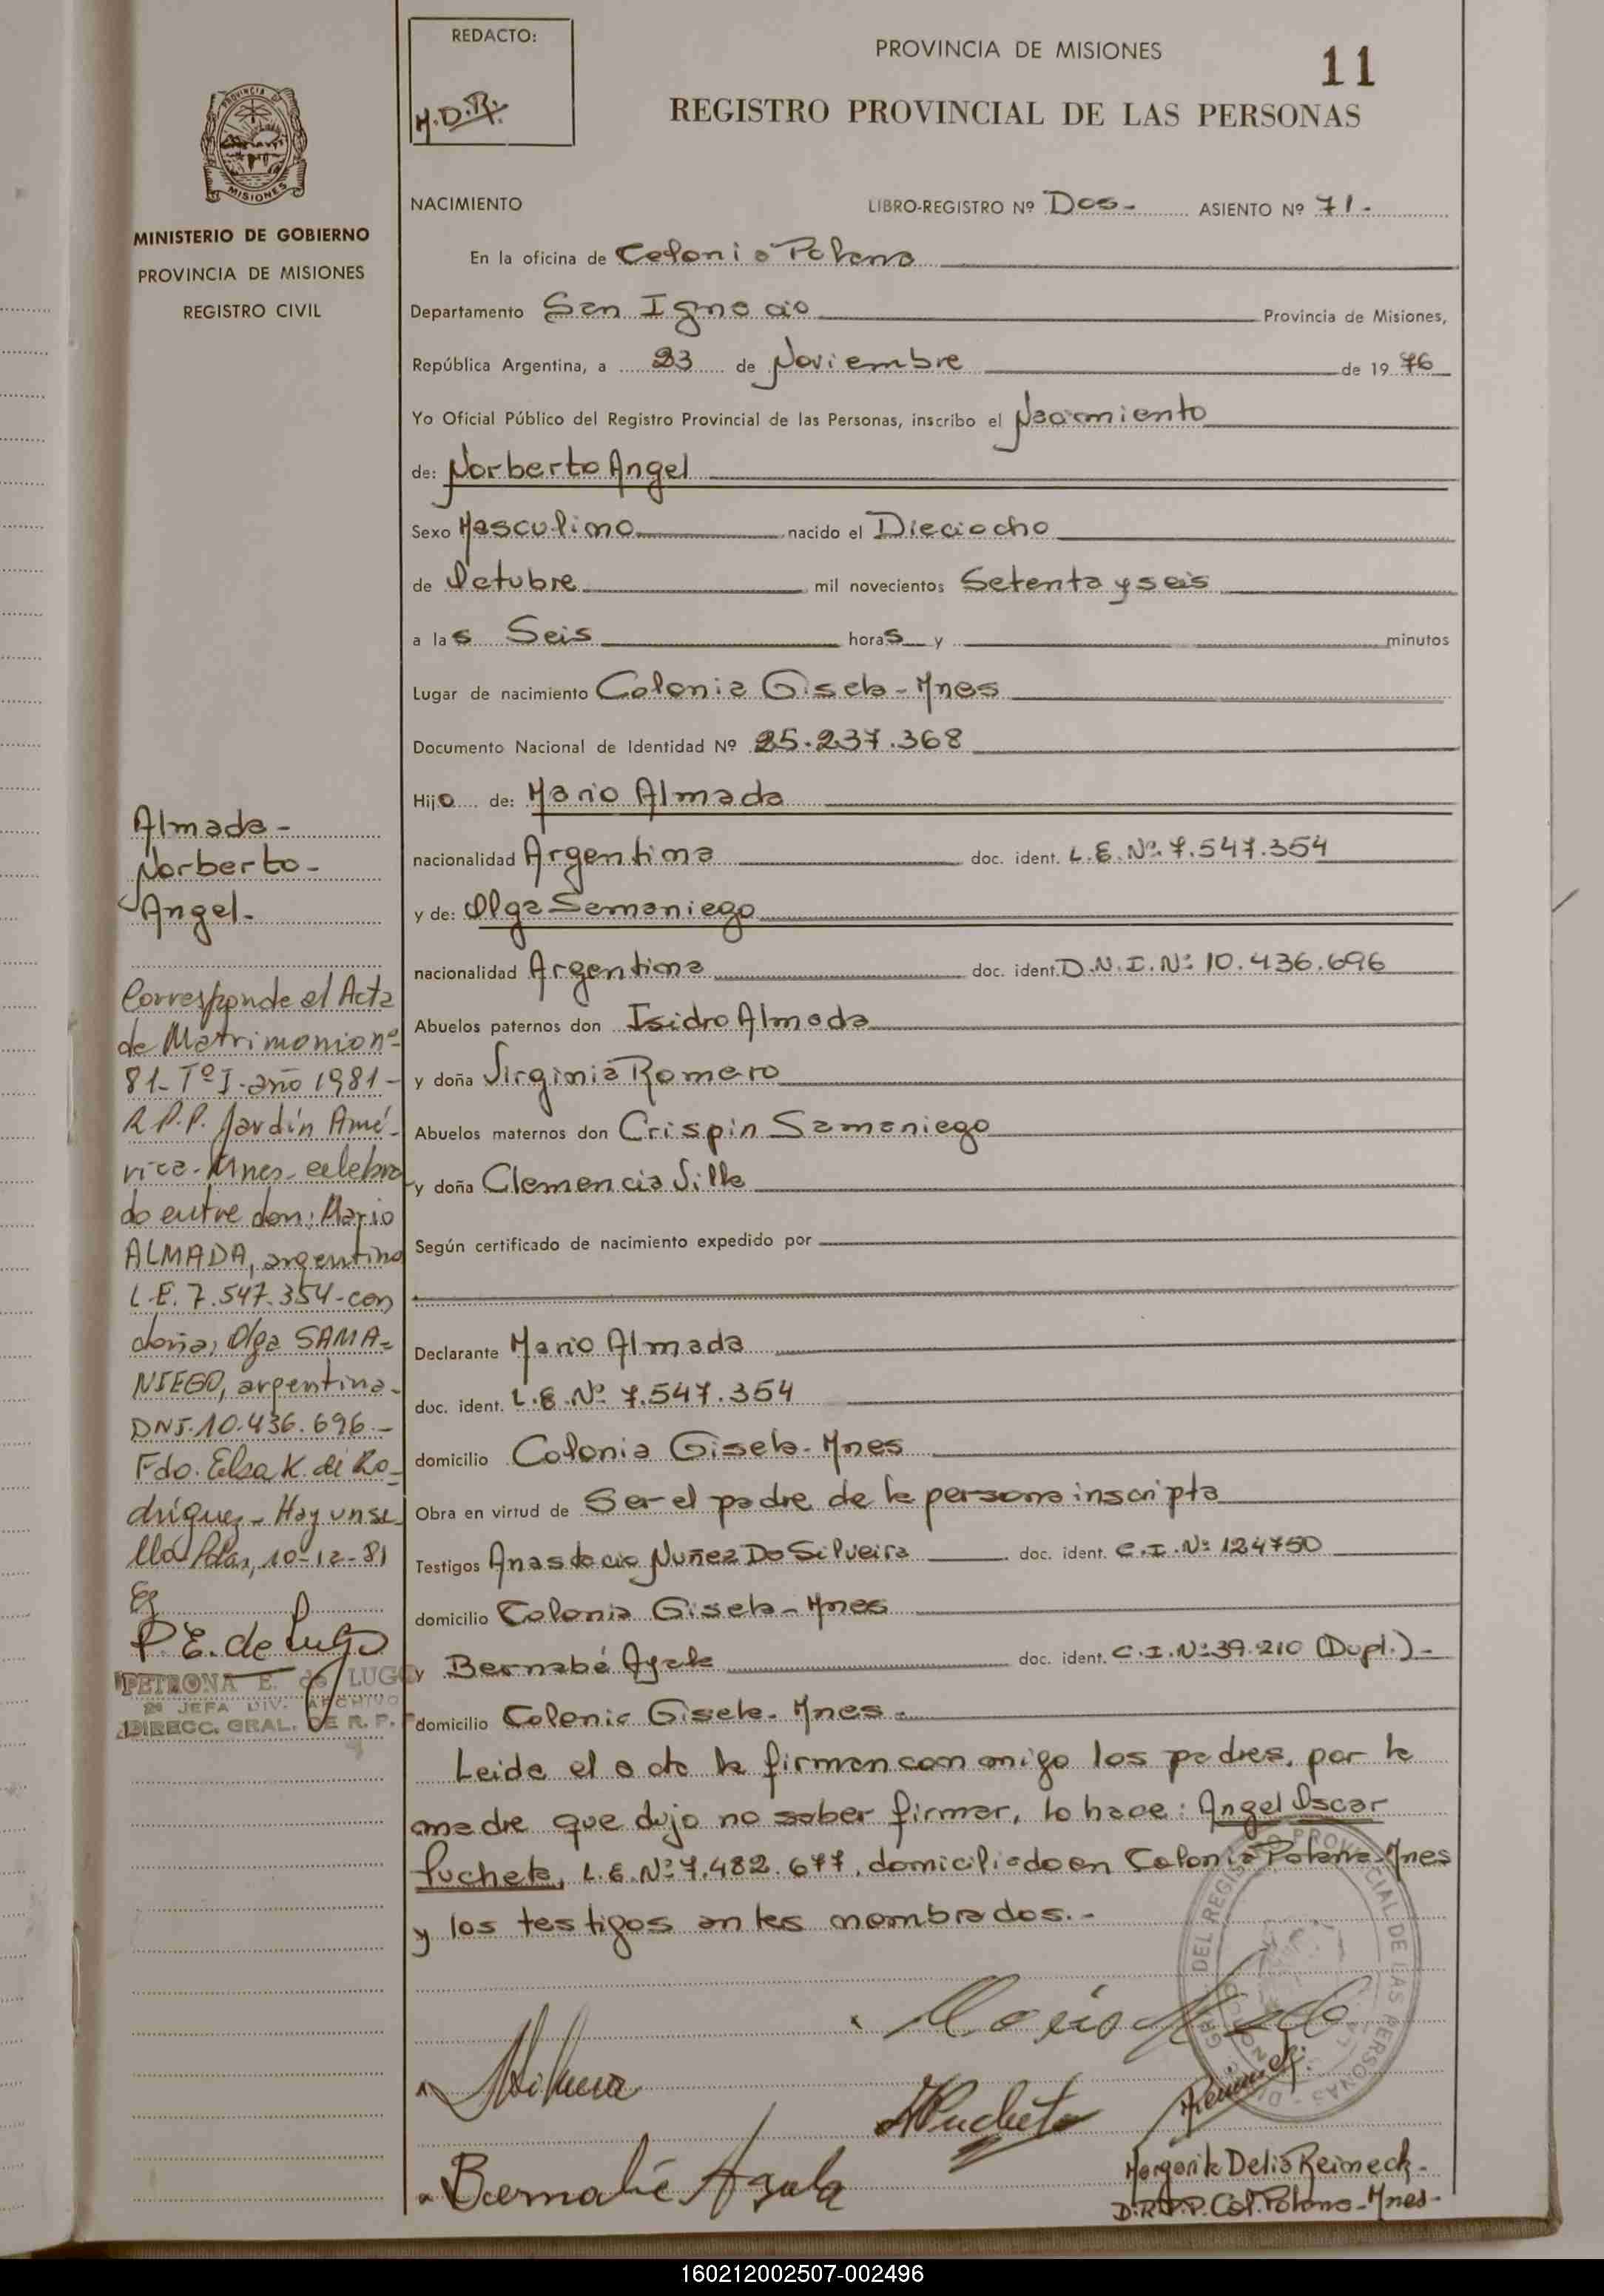 REDACTO:
M.D.R.
PROVINCIA DE MISIONES
11
REGISTRO PROVINCIAL DE LAS PERSONAS
PROVINCIA DE
MISIONES
MINISTERIO DE GOBIERNO
PROVINCIA DE MISIONES
REGISTRO CIVIL
NACIMIENTO LIBRO-REGISTRO Nº Dos- ASIENTO Nº 71.-
En la oficina de Colonia Polana
Departamento San Ignacio Provincia de Misiones,
República Argentina, a 23 de Noviembre de 1976
Yo Oficial Público del Registro Provincial de las Personas, inscribo el Nacimiento
de: Norberto Angel
Sexo Masculino nacido el Dieciocho
de Octubre mil novecientos Setenta y seis
a las Seis horas y minutos
Lugar de nacimiento Colonia Gisela-Mnes
Documento Nacional de Identidad Nº 25.237.368
Hijo de: Mario Almada
nacionalidad Argentina doc. ident. L.E.Nº 7.547.354
y de: Olga Samaniego
nacionalidad Argentina doc. ident. D.N.I.Nº 10.436.696
Abuelos paternos don Isidro Almada
y doña Virginia Romero
Abuelos maternos don Crispin Samaniego
y doña Clemencia Villa
Según certificado de nacimiento expedido por
Declarante Mario Almada
doc. ident. L.E.Nº 7.547.354
domicilio Colonia Gisela-Mnes
Obra en virtud de Ser el padre de la persona inscripta
Testigos Anastacio Nuñez Do Silveira doc. ident. C.I.Nº 124750
domicilio Colonia Gisela-Mnes
y Bernabé Ayala doc. ident. C.I.Nº 39.210 (Dupl.)-
domicilio Colonia Gisela-Mnes.
Leida el acta la firman conmigo los padres, por la
madre que dijo no saber firmar, lo hace: Angel Oscar
Pucheta, L.E.Nº 7.482.677, domiciliado en Colonia Polana-Mnes
y los testigos antes nombrados.-
Bernabé Ayala
Margarita Delia Reineck-
D.R.P.P. Col. Polana-Mnes-
Almada-
Norberto-
Angel-
Corresponde al Acta
de Matrimonio nº
81-Tº I-año 1981-
R.P.P. Jardín Amé-
rica-Mnes-celebra
do entre don: Mario
ALMADA, argentino
L.E. 7.547.354-con
doña, Olga SAMA-
NIEGO, argentina-
DNI.10.436.696.-
Fdo. Elsa K. de Ro-
driguez-Hay un se
llo Pdas, 10-12-81
P.E. de Lugo
PETRONA E. de LUGO
JEFA DIV. ARCHIVO
DIRECC. GRAL. DE R. P.
DEL REGISTRO PROVINCIAL DE LAS PERSONAS
160212002507-002496